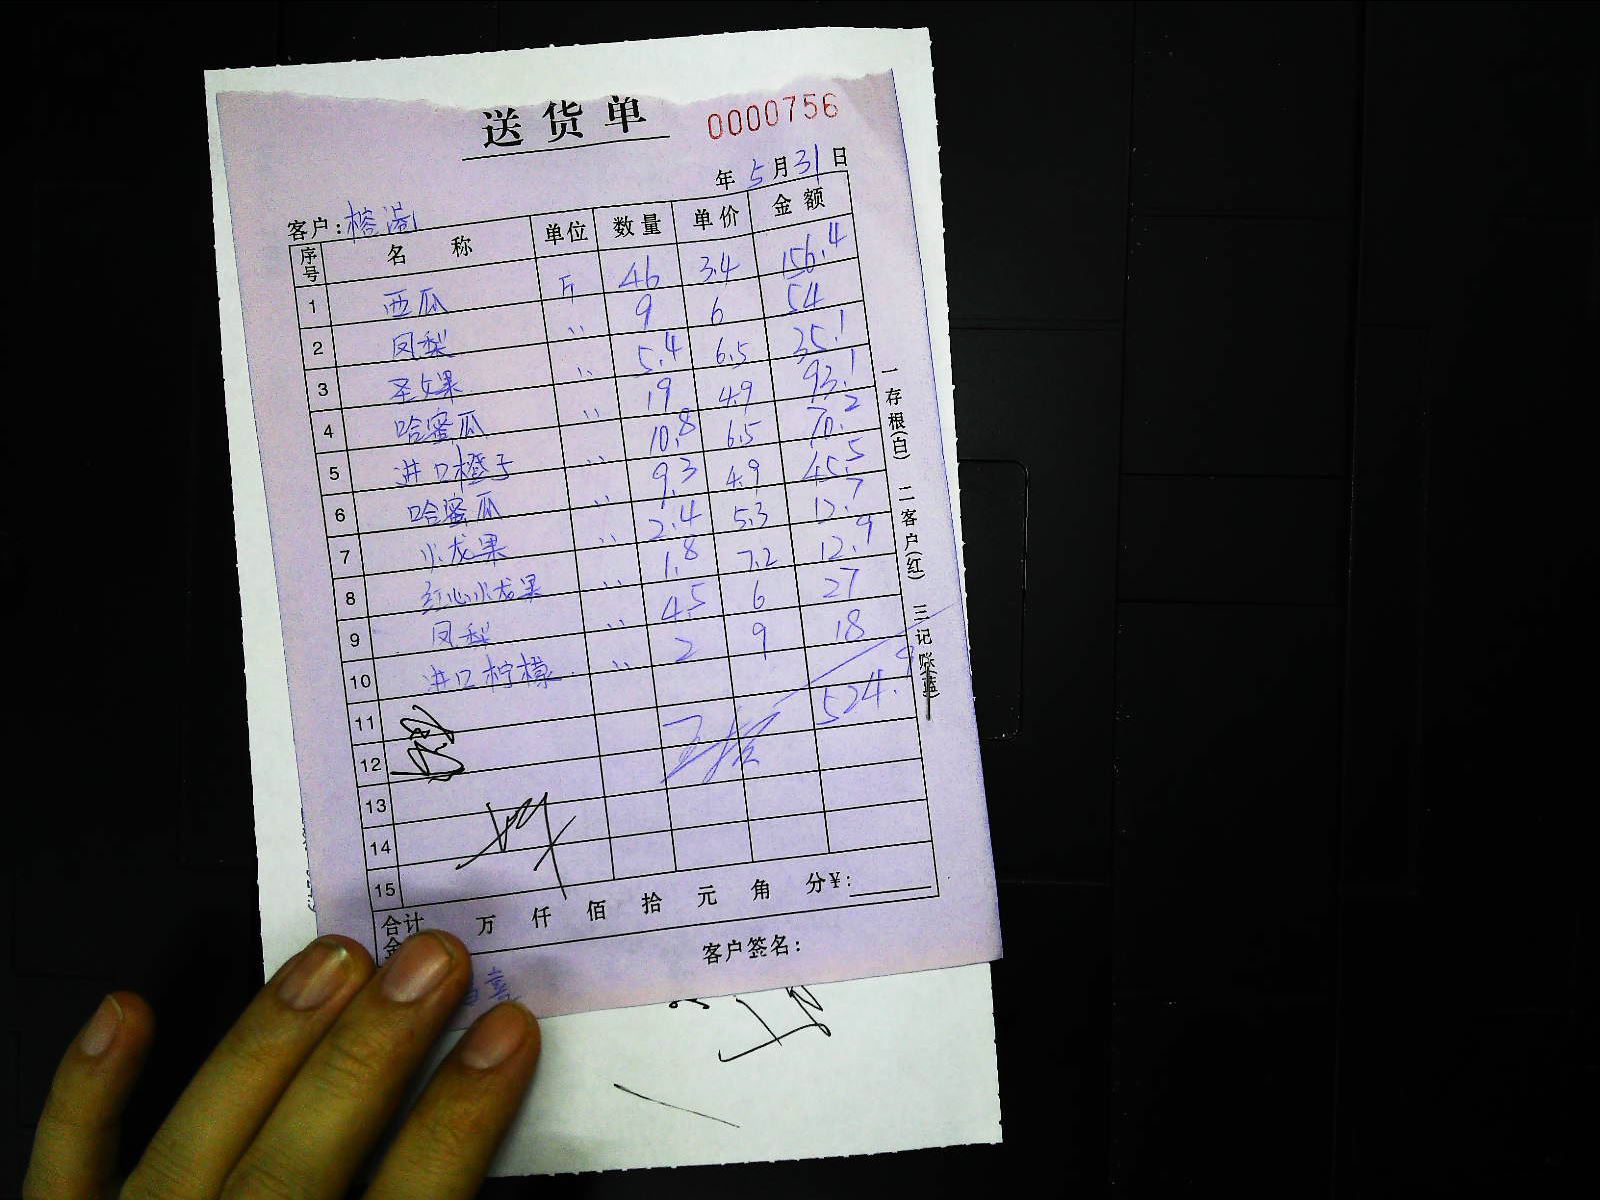 送货单 0000756
年 5 月 31 日
客户:榕
序号 名称 单位 数量 单价 金额
1 西瓜 斤 46 3.4 156.4
2 凤梨 〃 9 6 54
3 圣女果 〃 5.4 6.5 35.1
4 哈蜜瓜 〃 19 4.9 93.1
5 进口橙子 〃 10.8 6.5 70.2
6 哈蜜瓜 〃 9.3 4.9 45.5
7 火龙果 〃 2.4 5.3 12.7
8 红心火龙果 〃 1.8 7.2 12.9
9 凤梨 〃 4.5 6 27
10 进口柠檬 〃 2 9 18
11 524.9
12
13
14
15
合计 万 仟 佰 拾 元 角 分¥:
金
客户签名:
一存根(白) 二客户(红) 三记账(蓝)